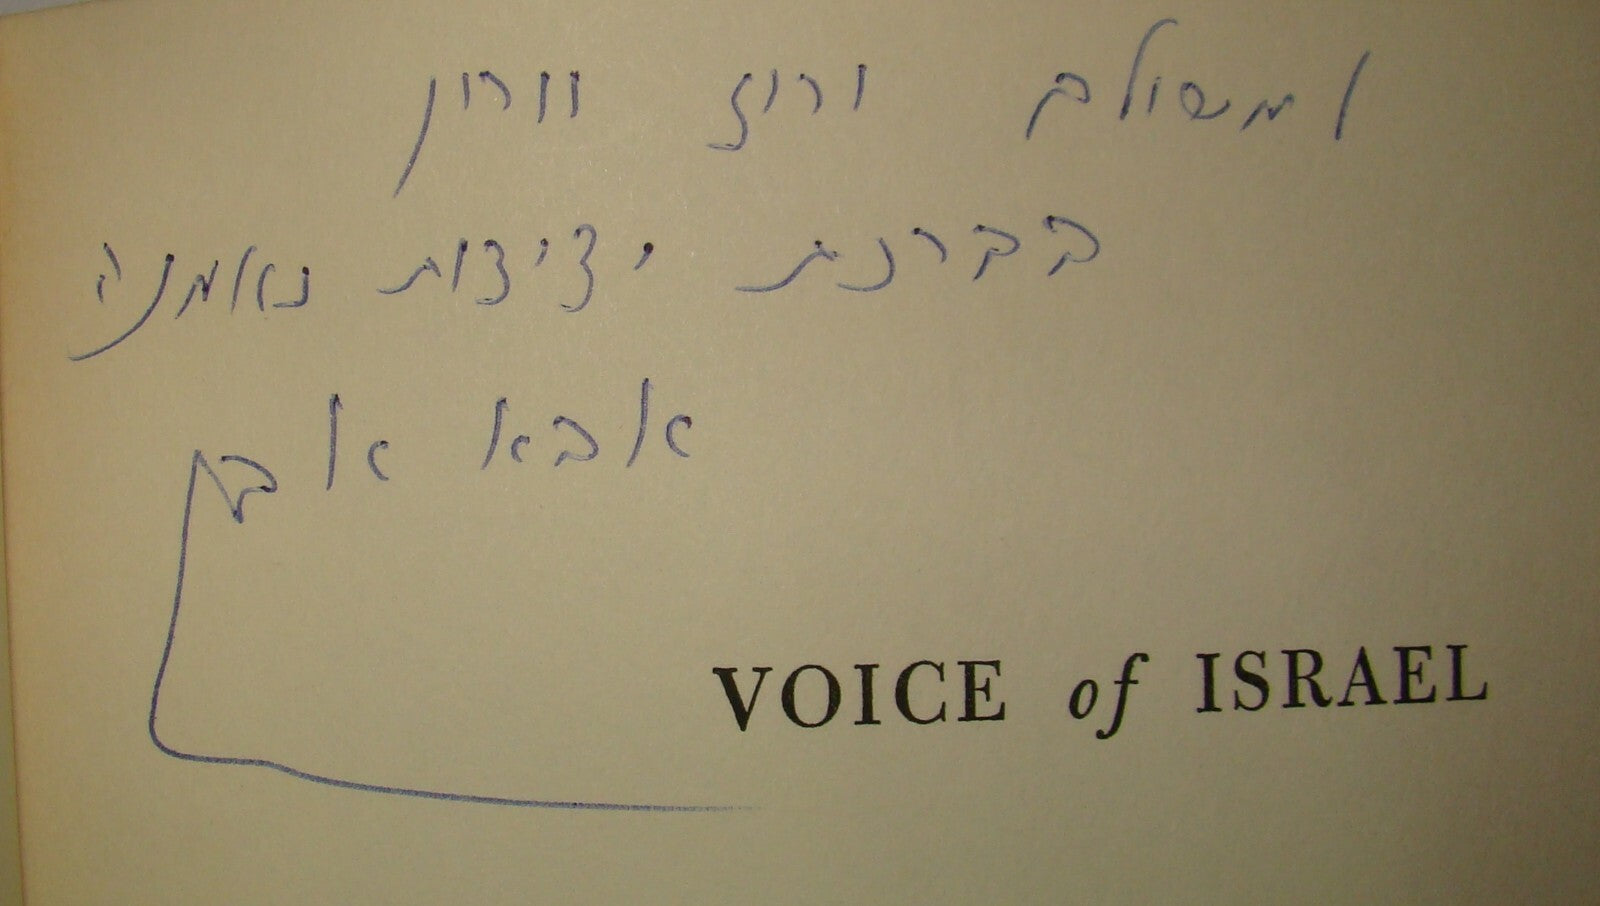 למשולם ורוז וורון
בברכת ידידות נאמנה
אבא אבן
VOICE of ISRAEL